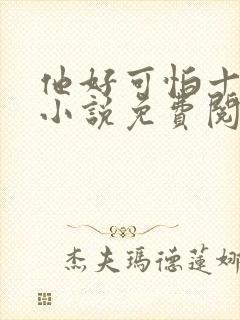 他好可怕十
小說免費閱
杰夫瑪德蓮娜